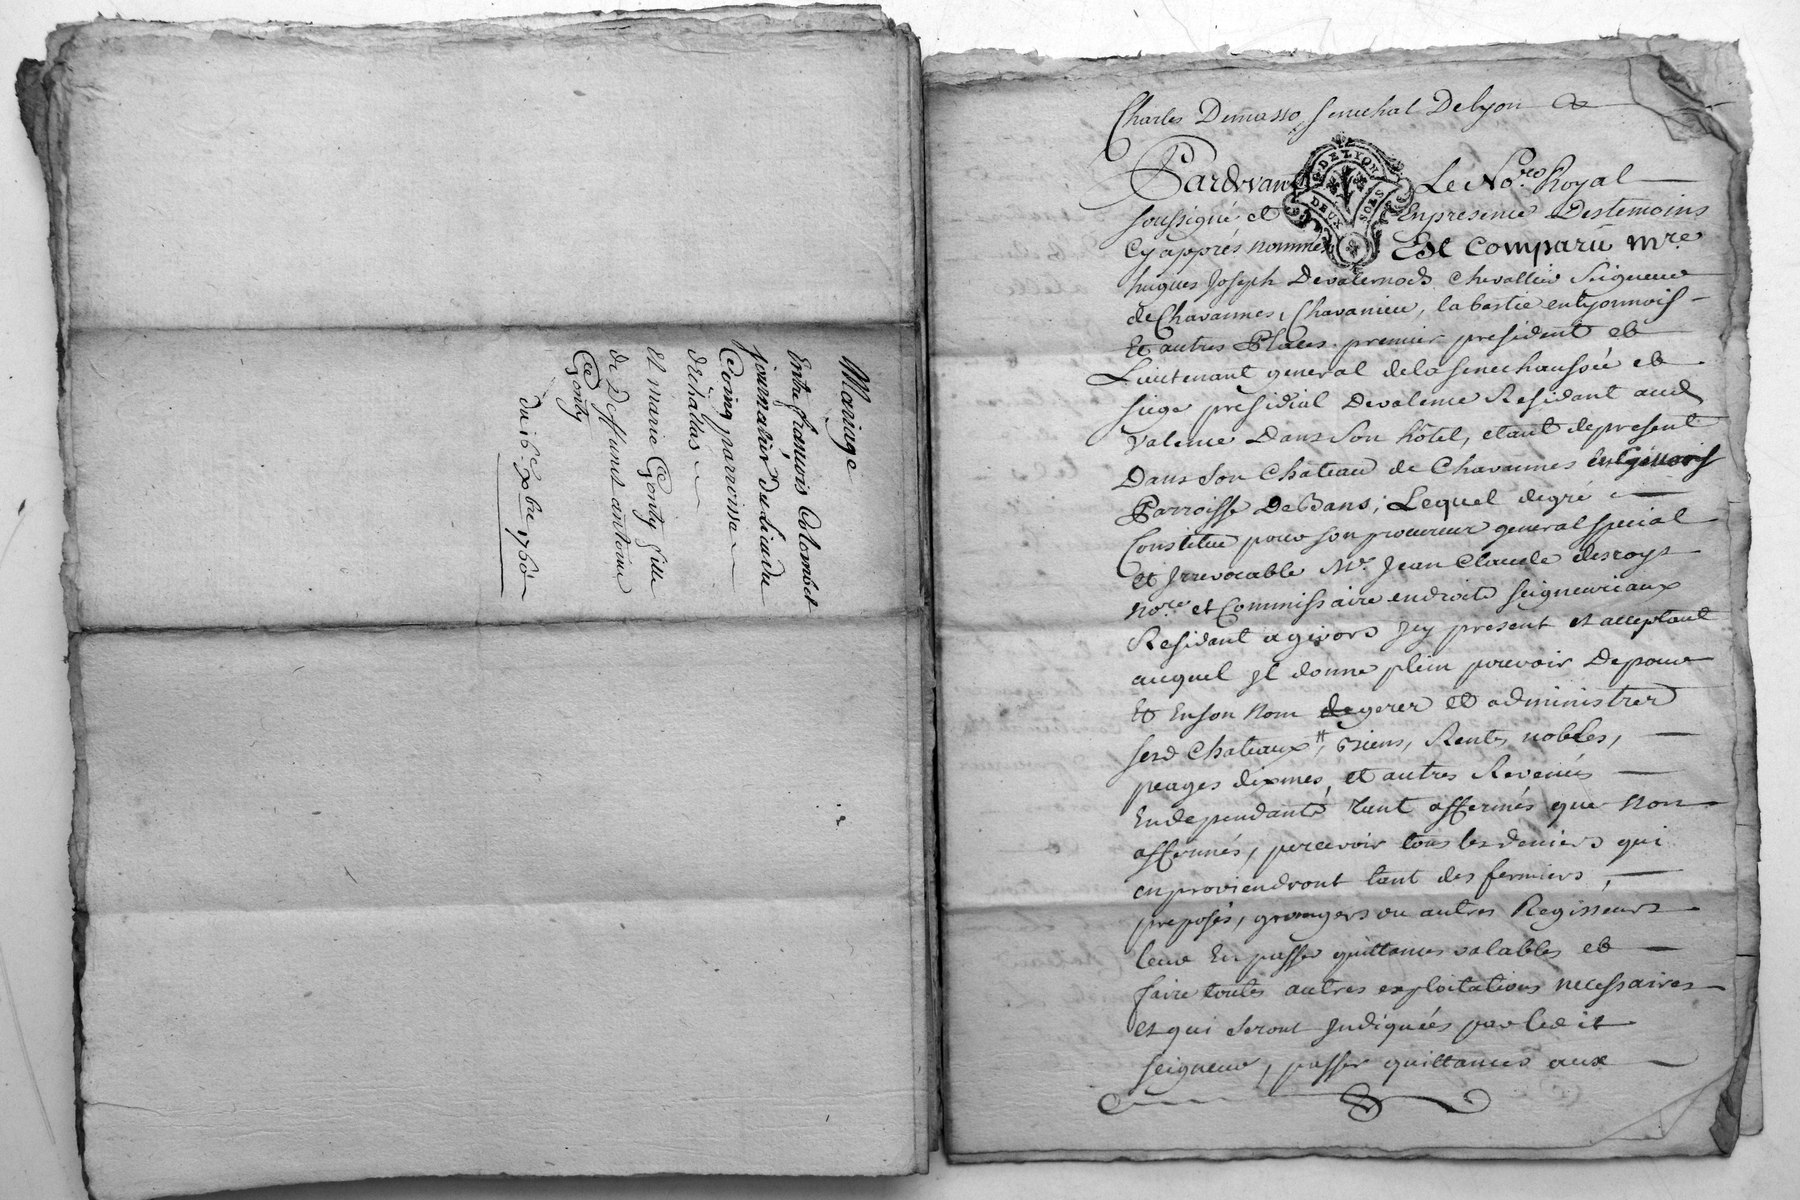 Mariage
Entre francois Colombet
journalier du Lieu du
Coing parroisse
d'échallas
et marie Gonty fille
de Deffunct antoine
Gonty
du 16e. xbre 1760
Charles Demasso, Senechal De lyon &
Pardevant Le No.re Royal
soussigné et En presence Des temoins
cy apprés nommés Est comparu mre.
hugues Joseph Devalernod Chevallier Seigneur
de Chavannes, Chavanieu, la bastie en Lyonnois
Et autres Places premier president et
Lieutenant general de la Senechaussée et
siege presidial De valence Residant aud
Valence Dans Son hôtel, etant de present
Dans Son Chateau de Chavannes
Parroisse De Bans; Lequel de gré
Constitue pour son procureur general special
et Irrevocable Me. Jean Claude desroys
no.re et Commissaire en droits seigneuriaux
Residant a givors Icy present et acceptant
auquel Il donne plein pouvoir De pour
Et En son nom de gerer et administrer
sesd Chateaux, Biens, Rentes nobles,
peages dixmes, et autres Revenus
En dependants tant affermés que non
affermés, percevoir tous les deniers qui
en proviendront tant des fermiers,
preposés, grangers ou autres Regisseurs
leur En passer quittances valables et
faire toutes autres exploitations necessaires
et qui seront Indiquées par led it
seigneur, passer quittances aux
DE LYON
DEUX SOLS